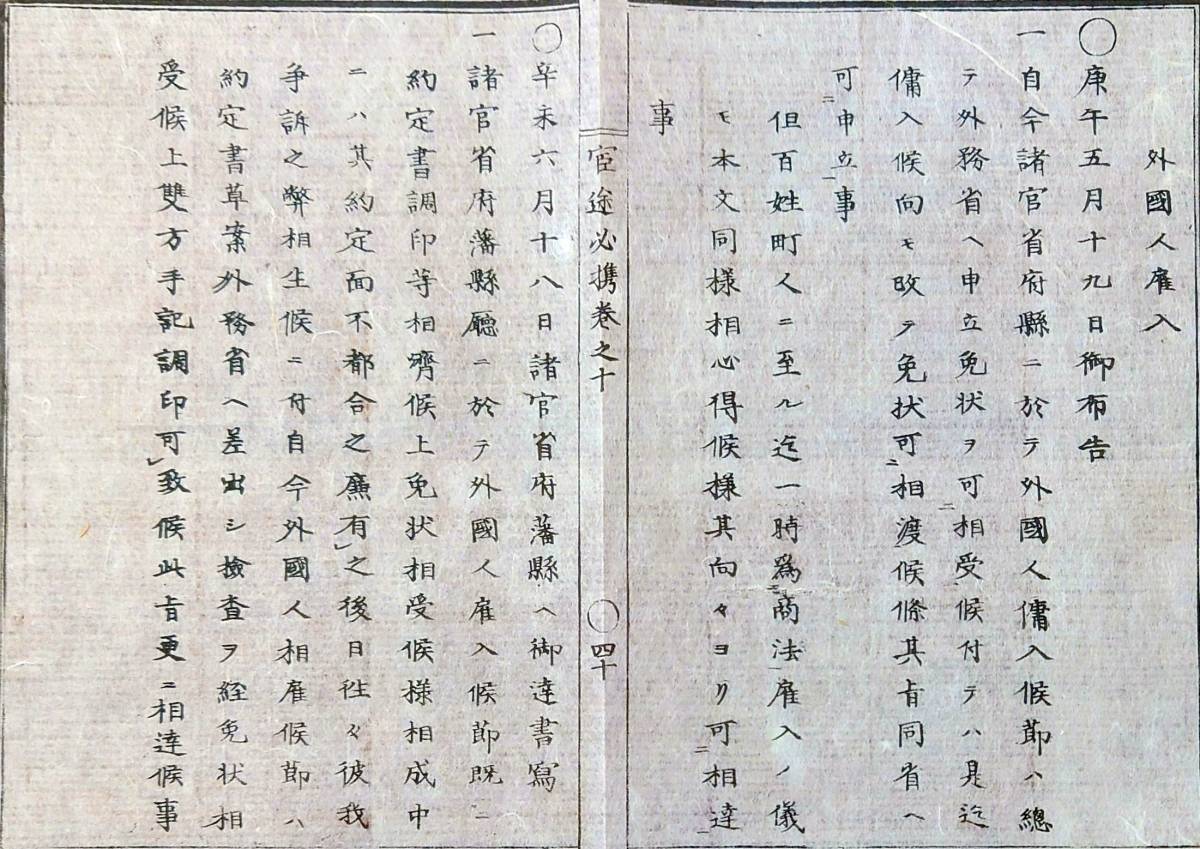 外國人雇入
◯庚午五月十九日御布告
一自今諸官省府縣ニ於テ外國人傭入候節ハ總
テ外務省ヘ申立免状ヲ可㆓相受候付テハ是迄
傭入候向モ改テ免状可㆓相渡候條其旨同省ヘ
可㆓申立㆒事
但百姓町人ニ至ル迄一時爲㆓商法㆒雇入ノ儀
モ本文同様相心得候様其向々ヨリ可㆓相達㆒
事
宦途必携巻之十
◯四十
◯辛未六月十八日諸官省府藩縣ヘ御達書寫
一諸官省府藩縣廳ニ於テ外國人雇入候節既ニ
約定書調印等相濟候上免状相受候様相成中
ニハ其約定面不都合之廉有之後日往々彼我
争訴之弊相生候ニ付自今外國人相雇候節ハ
約定書草案外務省ヘ差出シ檢査ヲ経免状相
受候上雙方手記調印可致候此旨更ニ相達候事